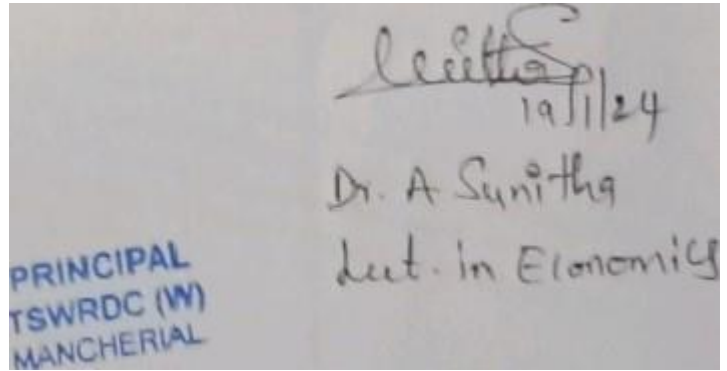 19/1/24
Dr. A Sunitha
Lect. in Economics
PRINCIPAL
TSWRDC (W)
MANCHERIAL